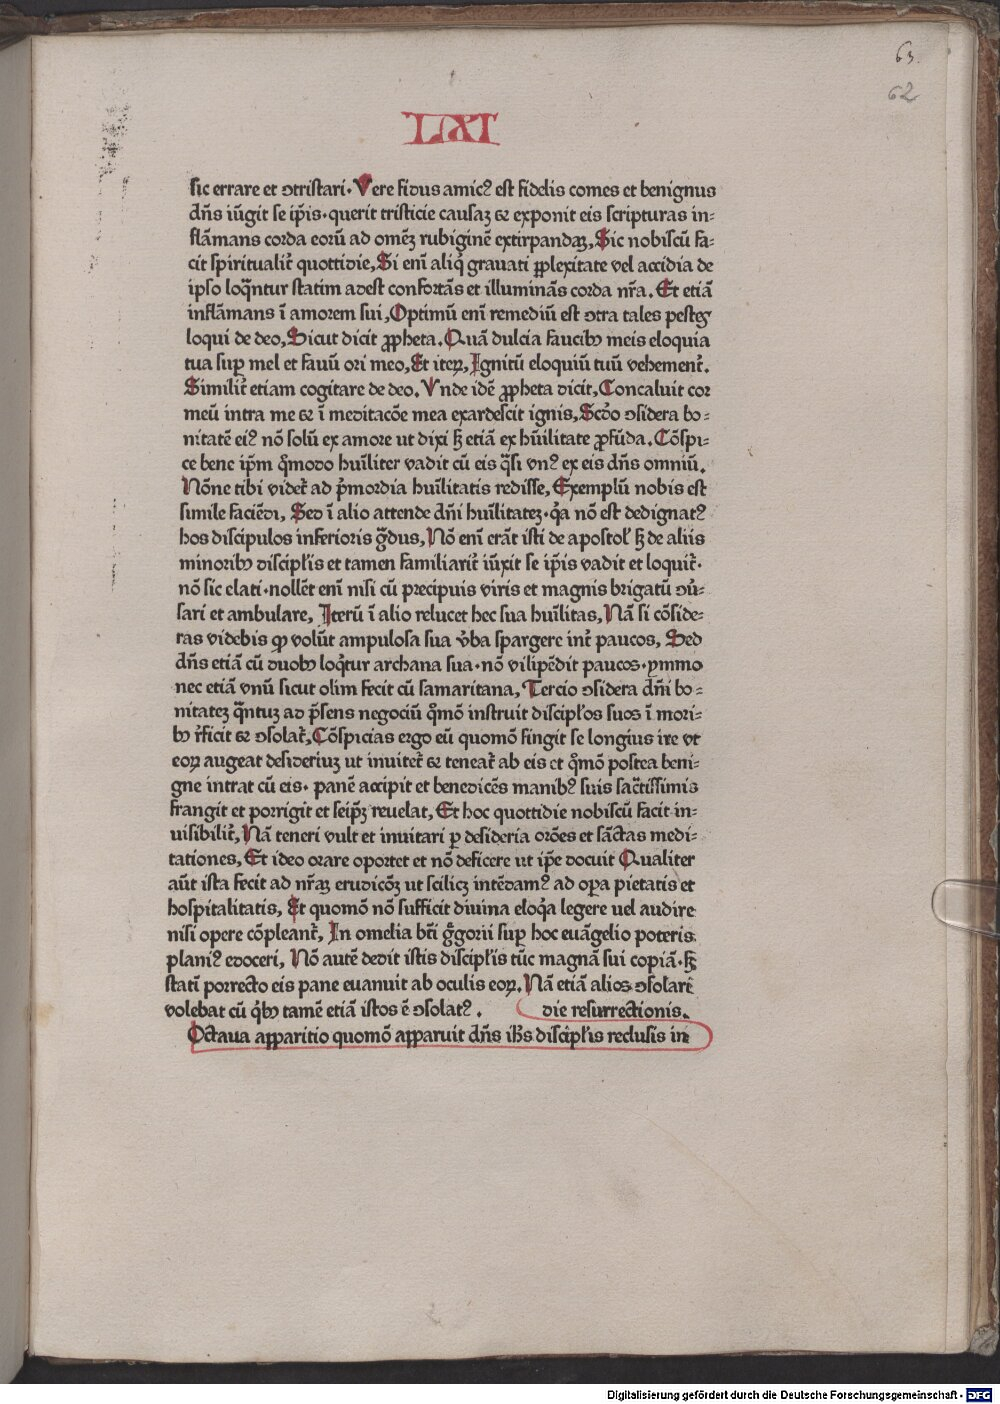 63.
62
LXI
sic errare et ↄtristari. Vere fidus amicꝰ est fidelis comes et benignus
dn̄s iūgit se ip̄is. querit tristicie causaꝫ ⁊ exponit eis scripturas in⸗
flāmans corda eorū ad omēꝫ rubiginē extirpandaꝫ, Sic nobiscū fa⸗
cit spiritualit̄ quottidie, Si enī aliq̄ grauati ꝑplexitate vel accidia de
ipso loq̄ntur statim adest confortās et illuminās corda nr̄a. Et etiā
inflāmans ī amorem sui, Optimū enī remediū est ↄtra tales pestes
loqui de deo, Sicut dicit ꝓpheta. Quā dulcia faucibꝫ meis eloquia
tua suꝑ mel et fauū ori meo, Et iteꝝ, Ignitū eloquiū tuū vehement̄.
Similit̄ etiam cogitare de deo. Vnde idē ꝓpheta dicit, Concaluit cor
meū intra me ⁊ ī meditacōe mea exardescit ignis, Scd̄o ↄsidera bo⸗
nitatē eiꝰ nō solū ex amore ut dixi sꝫ etiā ex hūilitate ꝓfūda. Cōspi⸗
ce bene ip̄m q̄modo huīliter vadit cū eis q̄si vnꝰ ex eis dn̄s omniū.
Nōne tibi videt̄ ad p̄mordia huīlitatis redisse, Exemplū nobis est
simile faciēdi, Sed ī alio attende dn̄i huīlitateꝫ. q̄a nō est dedignatꝰ
hos discipulos inferioris g̃dus, Nō enī erāt isti de apostol̉ sꝫ de aliis
minoribꝫ discipl̄is et tamen familiarit̄ iūxit se ip̄is vadit et loquit̄.
nō sic elati. nollēt enī nisi cū precipuis viris et magnis brigatū ↄū⸗
sari et ambulare, Iterū ī alio relucet hec sua huīlitas, Nā si cōside⸗
ras videbis ꝙ volūt ampulosa sua v̄ba spargere int̄ paucos, Sed
dn̄s etiā cū duobꝫ loq̄tur archana sua. nō vilipēdit paucos. ymmo
nec etiā vnū sicut olim fecit cū samaritana, Tercio ↄsidera dn̄i bo⸗
nitateꝫ q̄ntuꝫ ad p̄sens negociū q̄mō instruit discipl̄os suos ī mori⸗
bꝫ r̄ficit ⁊ ↄsolat̄, Cōspicias ergo eū quomō fingit se longius ire vt
eoꝝ augeat desideriuꝫ ut inuitet̄ ⁊ teneat̄ ab eis et q̄mō postea beni⸗
gne intrat cū eis. panē accipit et benedicēs manibꝰ suis sac̄tissimis
frangit et porrigit et seip̄ꝫ reuelat, Et hoc quottidie nobiscū facit in⸗
uisibilit̄, Nā teneri vult et inuitari ꝑ desideria orōes et sāctas medi⸗
tationes, Et ideo orare oportet et nō deficere ut ip̄e docuit Qualiter
aūt ista fecit ad nr̄aꝫ erudicōꝫ ut scilicꝫ intēdamꝰ ad oꝑa pietatis et
hospitalitatis, Et quomō nō sufficit diuina eloq̄a legere uel audire
nisi opere cōpleant̄, In omelia bt̄i g̃gorii suꝑ hoc euāgelio poteris
planiꝰ edoceri, Nō autē dedit istis discipl̄is tūc magnā sui copiā. sꝫ
statī porrecto eis pane euanuit ab oculis eoꝝ. Nā etiā alios ↄsolare
volebat cū q̄bꝫ tamē etiā istos ē ↄsolatꝰ.
die resurrectionis.
Octaua apparitio quomō apparuit dn̄s ih̄s discipl̄is reclusis in
Digitalisierung gefördert durch die Deutsche Forschungsgemeinschaft - DFG